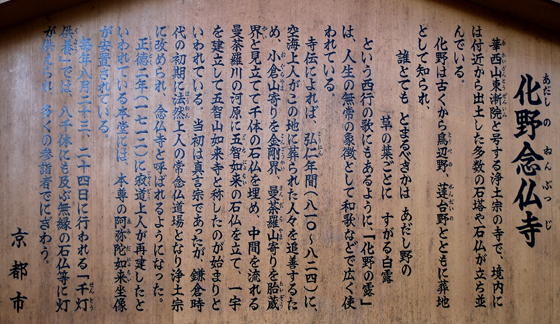 化野念仏寺
あだしのねんぶつじ
華西山東漸院と号する浄土宗の寺で、境内に
は付近から出土した多数の石塔や石仏が立ち並
んでいる。
化野は古くから鳥辺野、蓮台野とともに葬地
として知られ、
誰とても とまるべきかは あだし野の
草の葉ごとに すがる白露
という西行の歌にもあるように「化野の露」
は、人生の無常の象徴として和歌などで広く使
われている。
寺伝によれば、弘仁年間(八一〇〜八二四)に、
空海上人がこの地に葬られた人々を追善するた
め、小倉山寄りを金剛界、曼荼羅山寄りを胎蔵
界と見立てて千体の石仏を埋め、中間を流れる
曼荼羅川の河原に五智如来の石仏を立て、一宇
を建立して五智山如来寺と称したのが始まりと
いわれている。当初は真言宗であったが、鎌倉時
代の初期に法然上人の常念仏道場となり浄土宗
に改められ、念仏寺と呼ばれるようになった。
正徳二年(一七一二)に寂道上人が再建したと
いわれている本堂には、本尊の阿弥陀如来坐像
が安置されている。
毎年八月二十三、二十四日に行われる「千灯
供養」では、八千体にも及ぶ無縁の石仏等に灯
が供えられ、多くの参詣者でにぎわう。
京都市